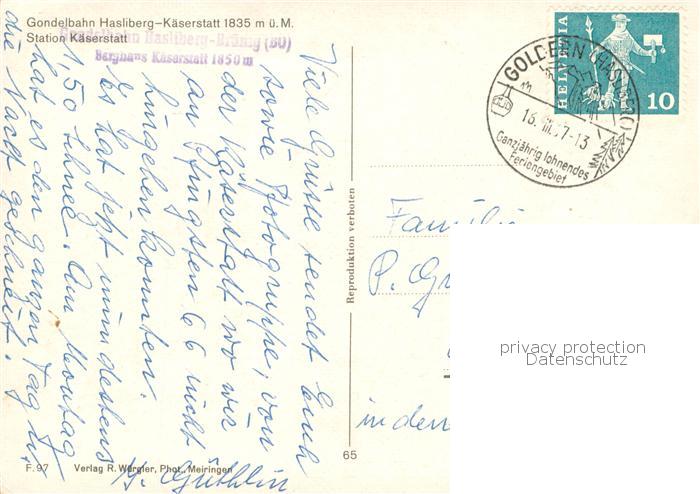 Gondelbahn Hasliberg-Käserstatt 1835 m ü.M.
Station Käserstatt
Gondelbahn Hasliberg-Brünig (BO)
Berghaus Käserstatt 1850 m
HELVETIA
10
GOLDERN (HASLIBERG)
16. III. 67-13
Ganzjährig lohnendes
Feriengebiet
Viele Grüsse sendet Euch
sowie Fotogruppe, von
der Käserstatt wo wir
an Pfingsten 66 nicht
hingehen konnten.
Es hat jetzt mindestens
1,50 Schnee. Am Montag
hat es den ganzen Tag u.
die Nacht geschneit.
Reproduktion verboten
Familie
P.
in den
65
F. 97 Verlag R. Würgler, Phot., Meiringen
privacy protection
Datenschutz